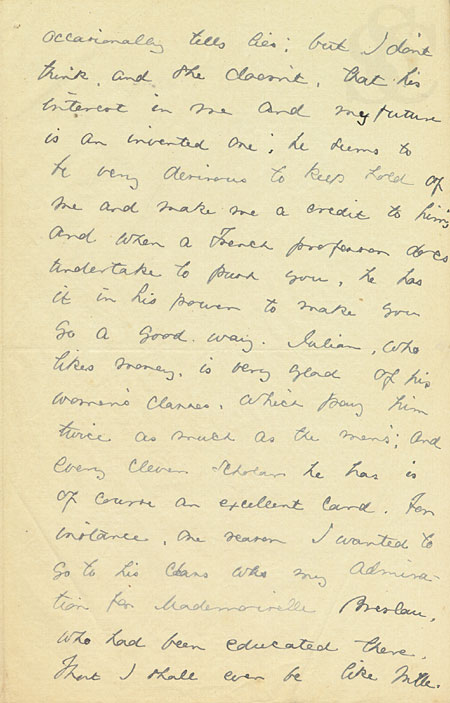 occasionally tells lies; but I don't
think, and she doesn't, that his
interest in me and my future
is an invented one; he seems to
be very desirous to keep hold of
me and make me a credit to him;
and when a French professor does
undertake to push you, he has
it in his power to make you
go a good way. Julian, who
likes money, is very glad of his
women's classes, which pay him
twice as much as the men's; and
every clever scholar he has is
of course an excellent card. For
instance, one reason I wanted to
go to his class was my admira-
tion for Mademoiselle Breslau,
who had been educated there.
That I shall ever be like Mlle.